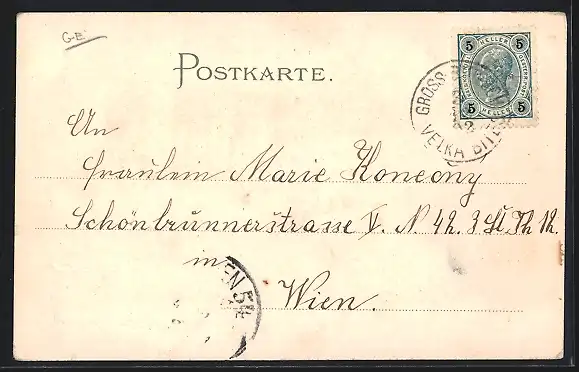 G-E
POSTKARTE.
5 HELLER 5
5 HELLER 5
GROSS
VELKA BITE
An
Fräulein Marie Konecny
Schönbrunnerstrasse V. N 42. 3 St. Th 12.
in
Wien.
EN 5/4